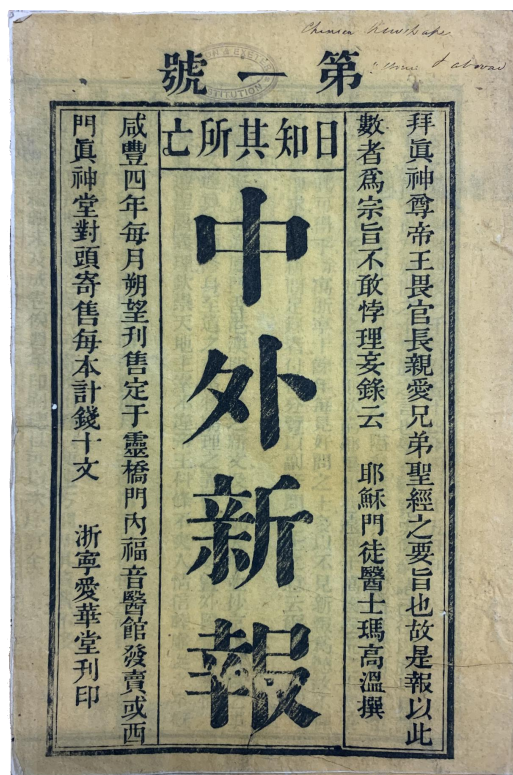 第一號
日知其所亡
拜眞神尊帝王畏官長親愛兄弟聖經之要旨也故是報以此
數者爲宗旨不敢悖理妄錄云 耶穌門徒醫士瑪高溫撰
中外新報
咸豐四年每月朔望刊售定于靈橋門內福音醫館發賣或西
門眞神堂對頭寄售每本計錢十文 浙寧愛華堂刊印